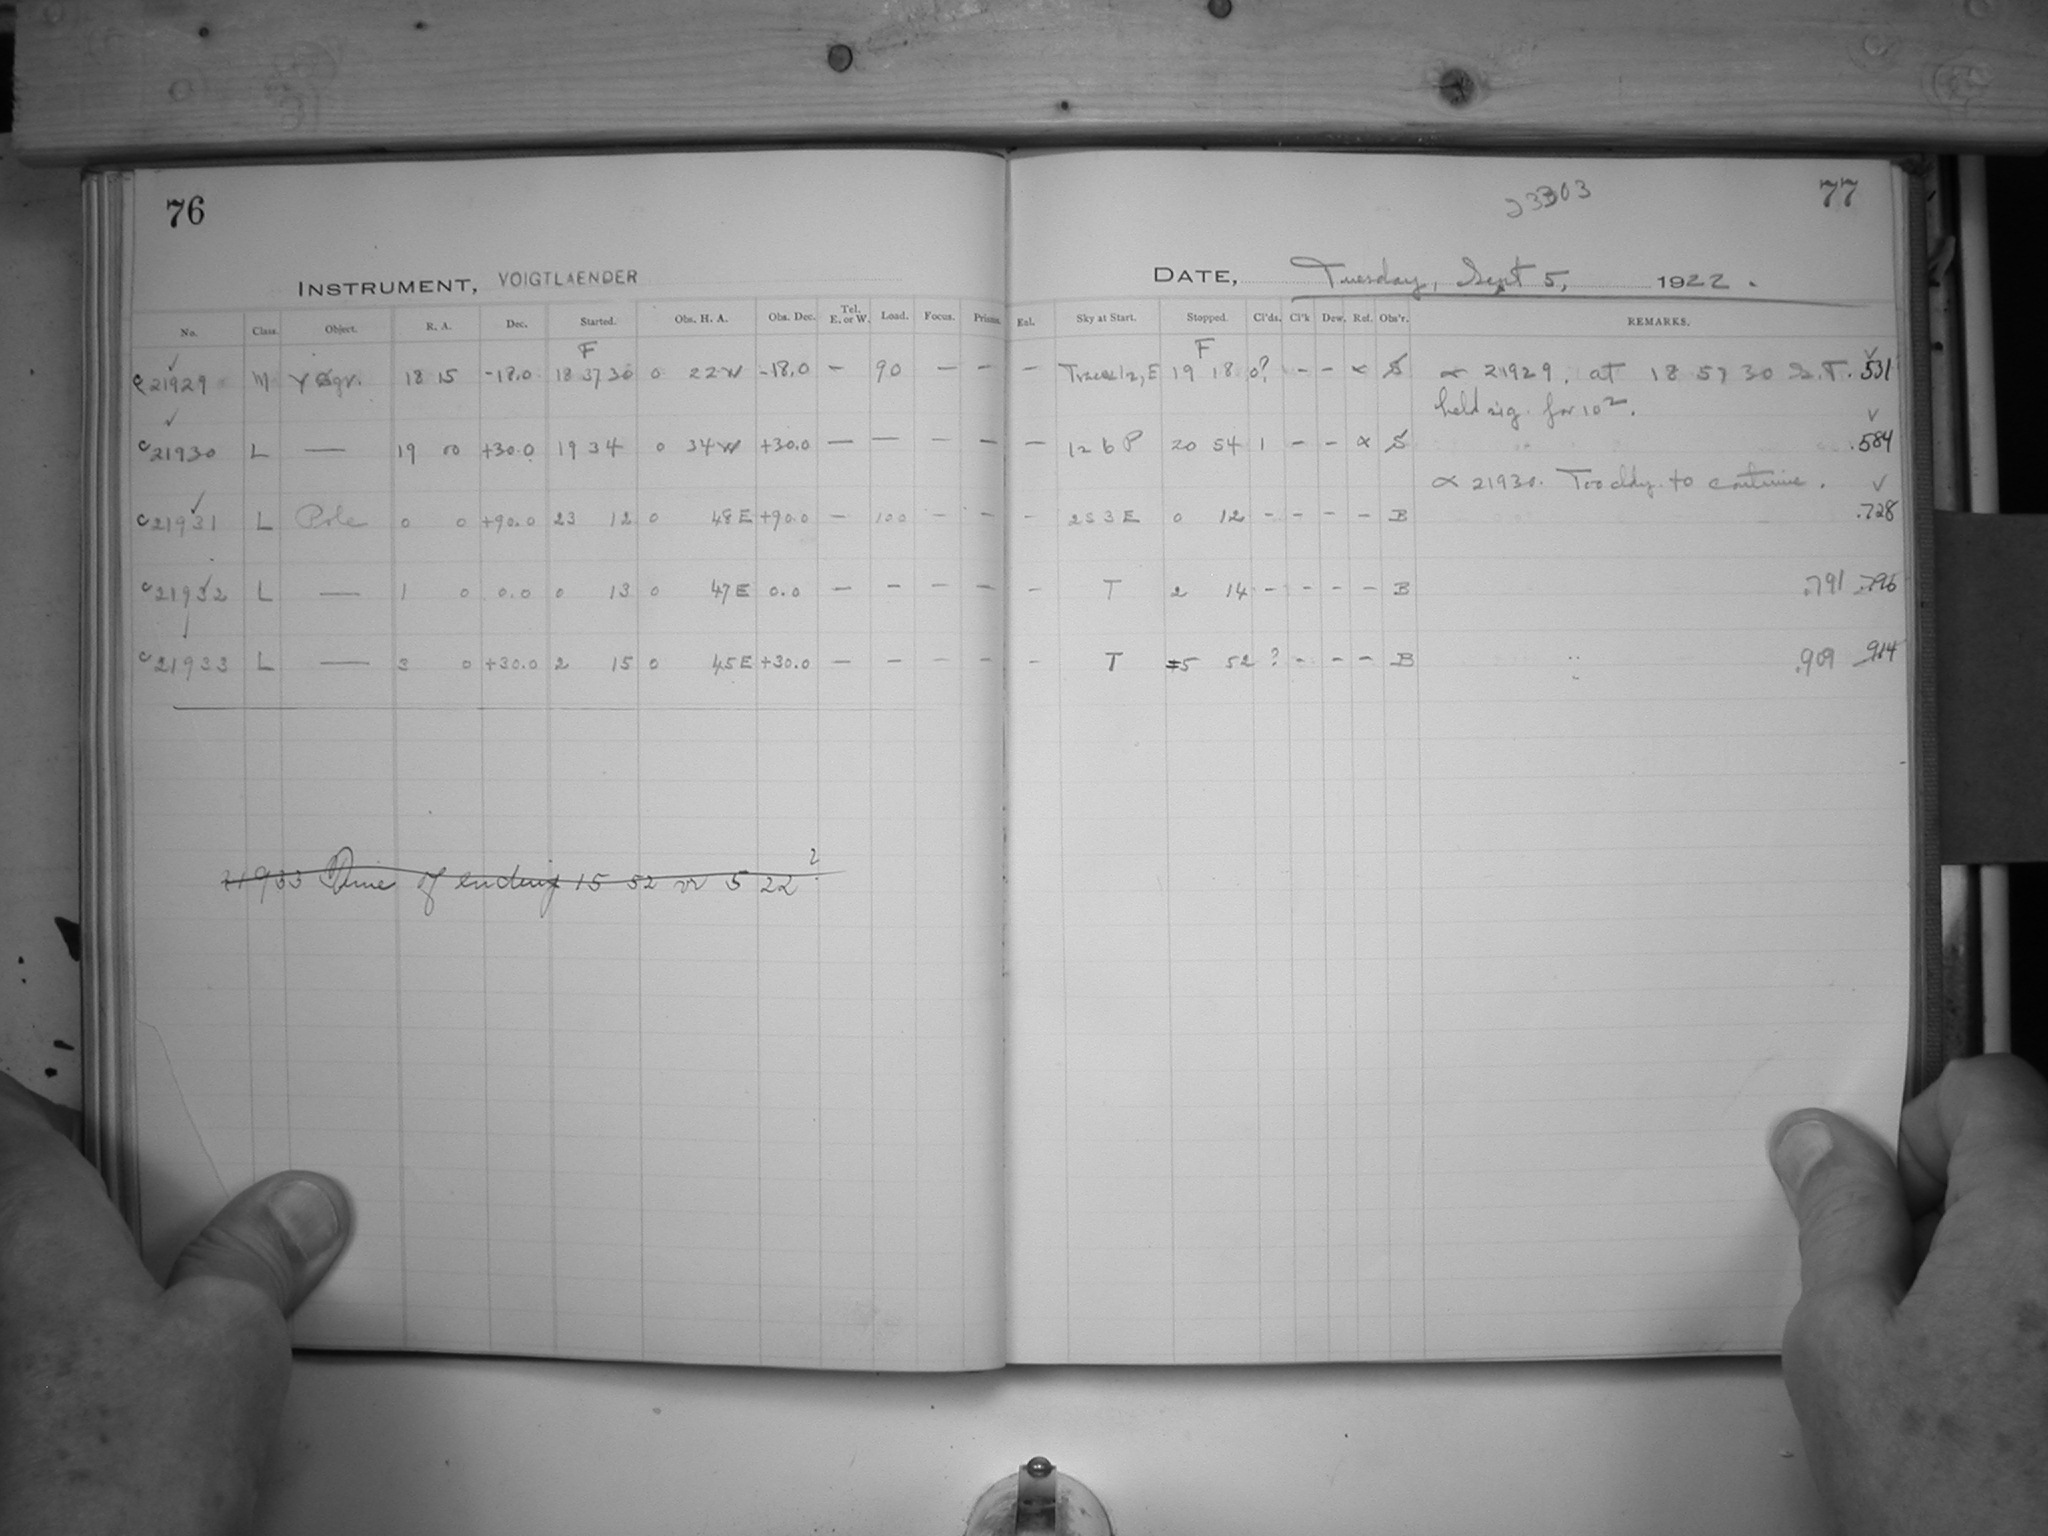 76
INSTRUMENT, VOIGTLAENDER
No. Class. Object. R. A. Dec. Started. Obs. H. A. Obs. Dec. Tel. E. or W. Load. Focus. Prisms.
F
c 21929 M Y Sgr. 18 15 -18.0 18 37 30 0 22 W -18.0 — 90 — —
c 21930 L — 19 00 +30.0 19 34 0 34 W +30.0 — — — —
c 21931 L Pole 0 0 +90.0 23 12 0 48 E +90.0 — 100 — —
c 21932 L — 1 0 0.0 0 13 0 47 E 0.0 — — — —
c 21933 L — 3 0 +30.0 2 15 0 45 E +30.0 — — — —
21933 Time of ending 15 52 or 5 22?
23303
77
DATE, Tuesday, Sept 5, 1922.
Enl. Sky at Start. Stopped. Cl'ds. Cl'k Dew. Ref. Obs'r. REMARKS.
F
— 19 18 0? - - α S α 21929. at 18 57 30 S.T. .531
held sig. for 10
— 12 6 P 20 54 1 - - α S .584
α 21930. Too cldy. to continue.
- 2 S 3 E 0 12 - - - - B .728
- T 2 14 - - - - B .791 .796
- T 5 52 ? - - - B .909 .914